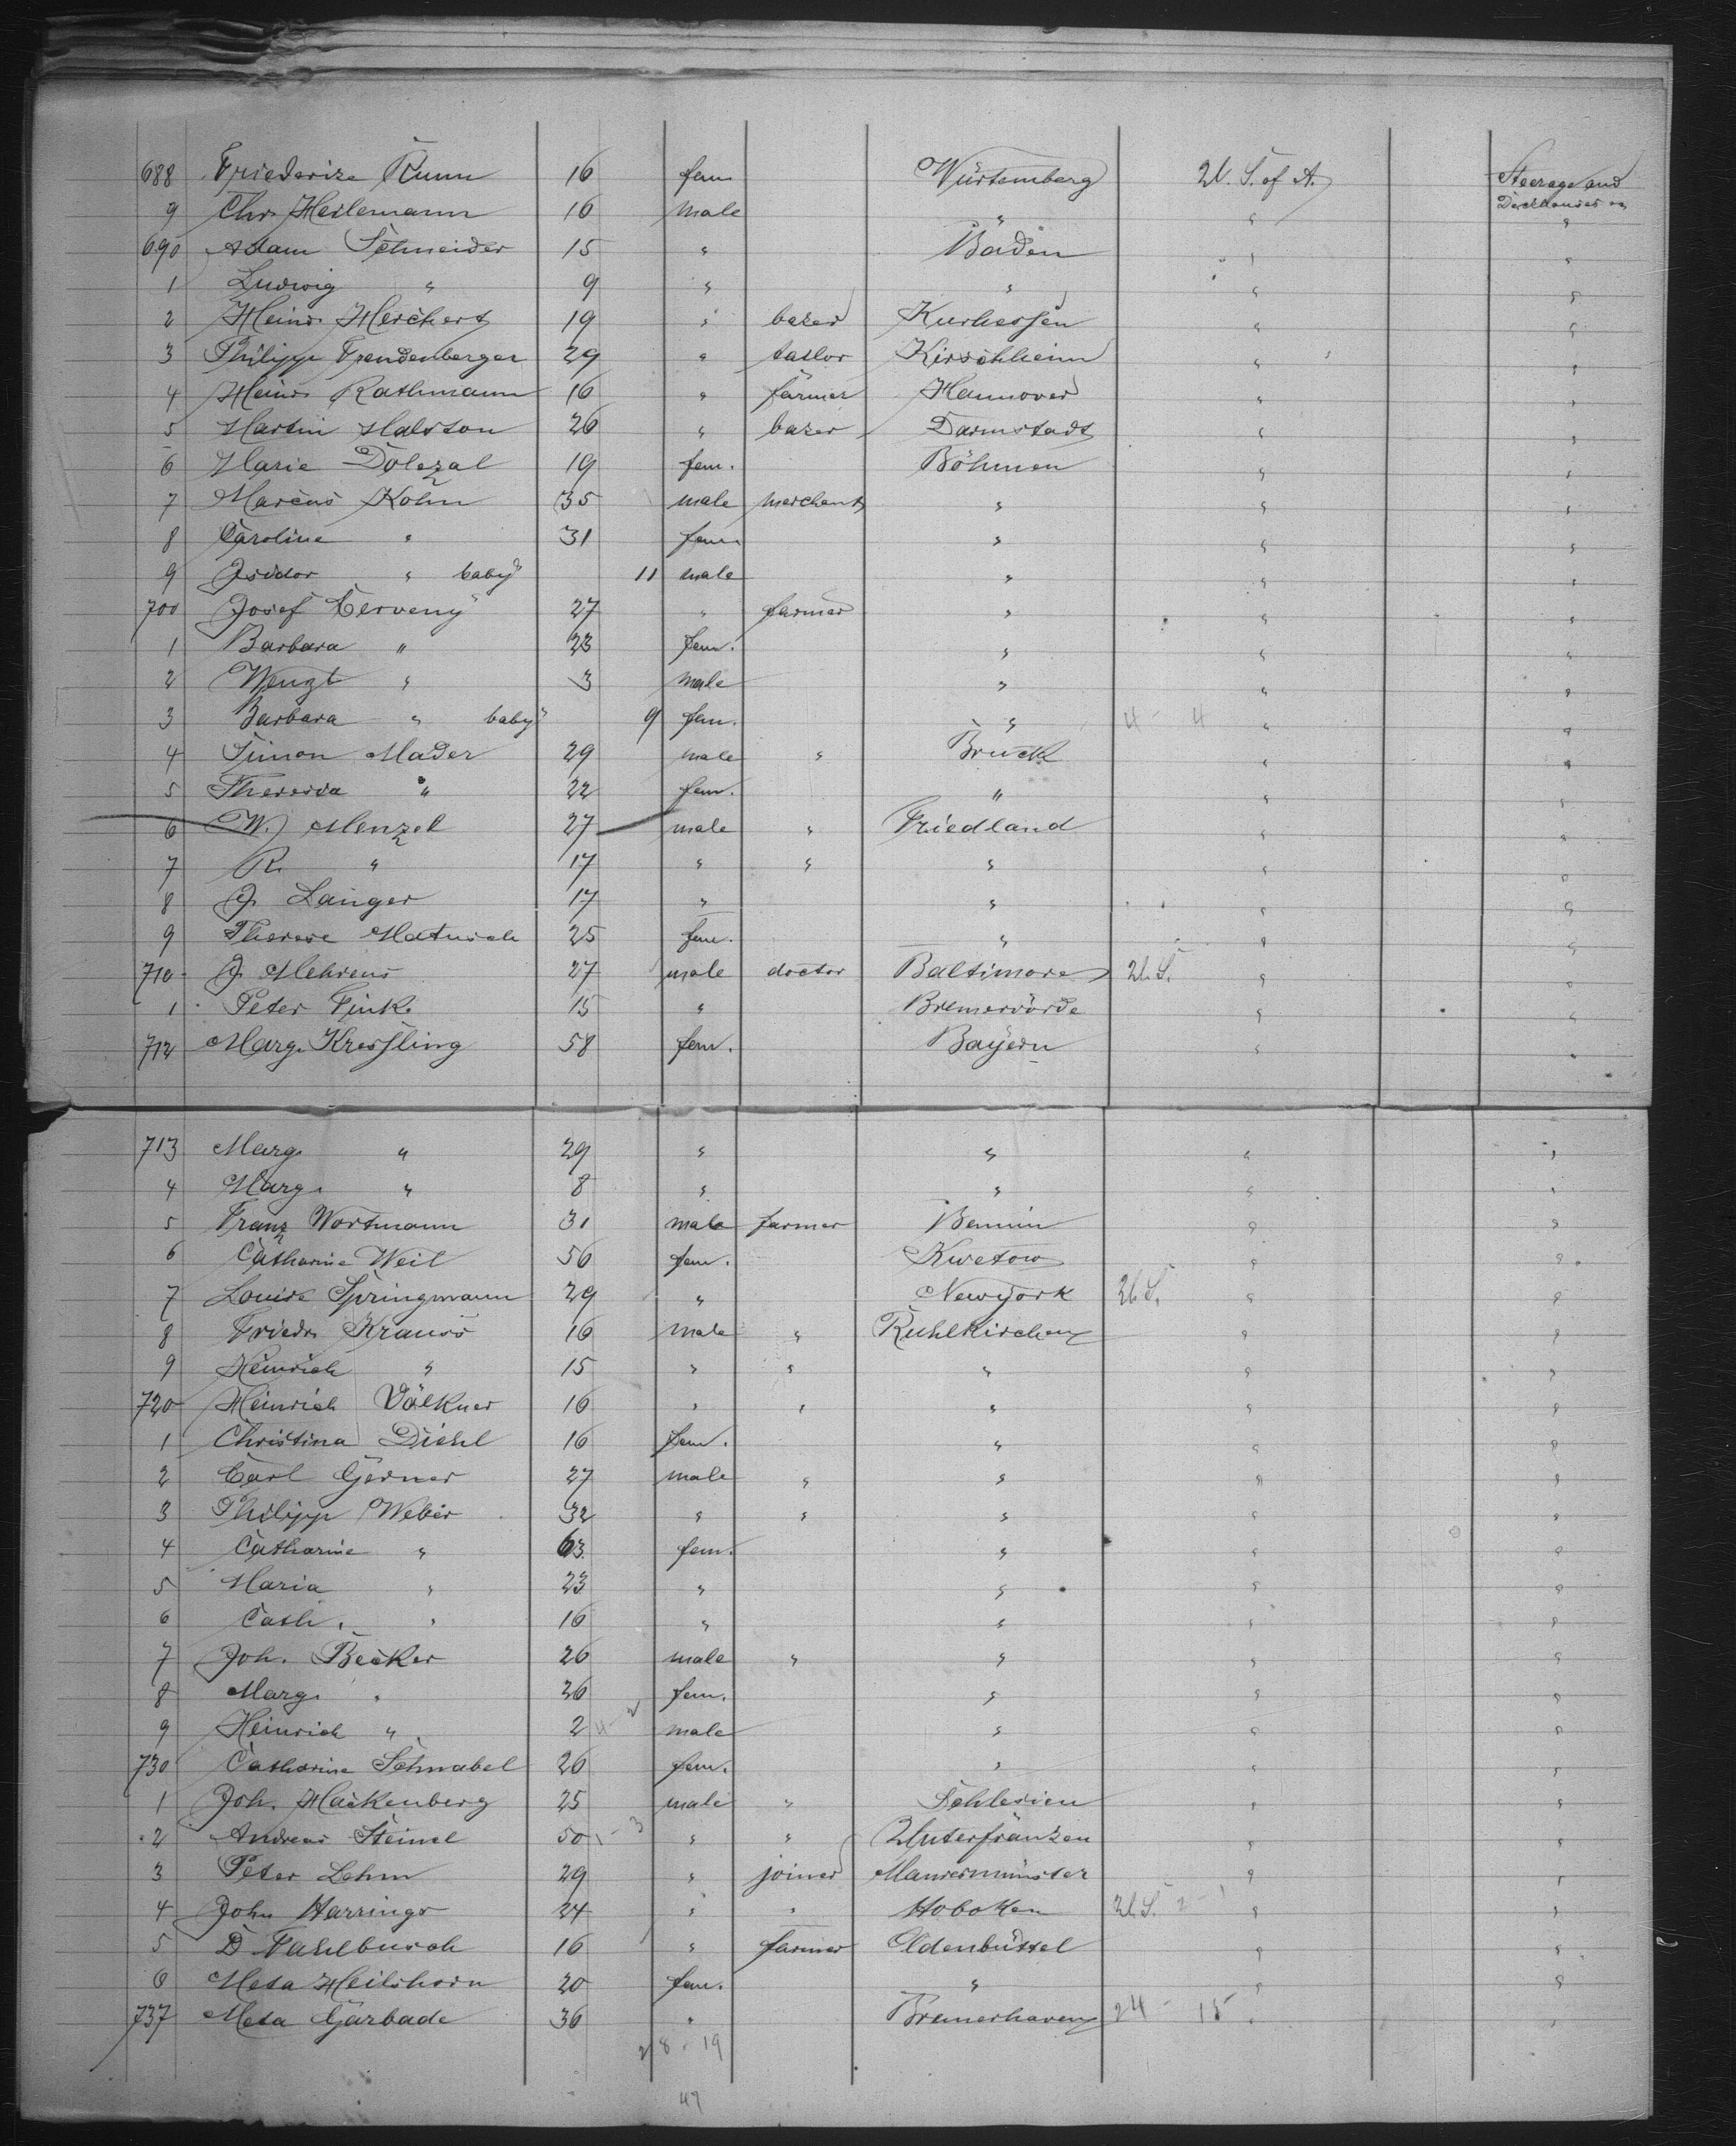 688 Friederize Kunn 16 fem Würtemberg U. S. of A. Steerage and Deckhouses
9 Chr. Heilemann 16 male " " "
690 Adam Schneider 15 " Baden " "
1 Ludwig " 9 " " " "
2 Heinr. Herchert 19 " baker Kurhessen " "
3 Philipp Frendenberger 29 " tailor Kirschheim " "
4 Heinr. Rathmann 16 " farmer Hannover " "
5 Martin Halston 26 " baker Darmstadt " "
6 Marie Dolezal 19 fem. Böhmen " "
7 Marcus Kohn 35 male merchant " " "
8 Caroline " 31 fem. " " "
9 Isidor " baby 11 male " " "
700 Josef Cerveny 27 " farmer " " "
1 Barbara " 23 fem. " " "
2 Wenzl " 3 male " " "
3 Barbara " baby 9 fem. " 4 - 4 " "
4 Simon Mader 29 male " Bruck " "
5 Theresia " 22 fem. " " "
6 W. Menzel 27 male " Friedland " "
7 R. " 17 " " " " "
8 J. Langer 17 " " " "
9 Therese Matusch 25 fem. " " "
710 J. Mehrens 27 male doctor Baltimore U.S. " "
1 Peter Fink 15 " Bremervörde " "
712 Marg. Kressling 58 fem. Bayern " "
713 Marg. " 29 " " " "
4 Marg. " 8 " " " "
5 Franz Wortmann 31 male farmer Bennin " "
6 Catharine Weil 56 fem. Kwetow " "
7 Louise Springmann 29 " Newyork U.S. " "
8 Friedr. Krauss 16 male " Ruhlkirchen " "
9 Heinrich " 15 " " " " "
720 Heinrich Völkner 16 " " " " "
1 Christina Diehl 16 fem. " " "
2 Carl Gerner 27 male " " " "
3 Philipp Weber 32 " " " " "
4 Catharine " 63 fem. " " "
5 Maria " 23 " " " "
6 Cath. " 16 " " " "
7 Joh. Becker 26 male " " " "
8 Marg. " 26 fem. " " "
9 Heinrich " 2 4 - 2 male " " "
730 Catharine Schnabel 26 fem. " " "
1 Joh. Hackenberg 25 male " Schlesien " "
2 Andreas Steinel 50 1 - 3 " " Unterfranken " "
3 Peter Lehm 29 " joiner Maursmünster " "
4 John Harrings 24 " " Hoboken U.S. 2 - 1 " "
5 D Fahlbusch 16 " farmer Oldenbüttel " "
6 Meta Heilshorn 20 fem. " " "
737 Meta Garbade 36 " Bremerhaven 24 - 15 " "
28 - 19
47